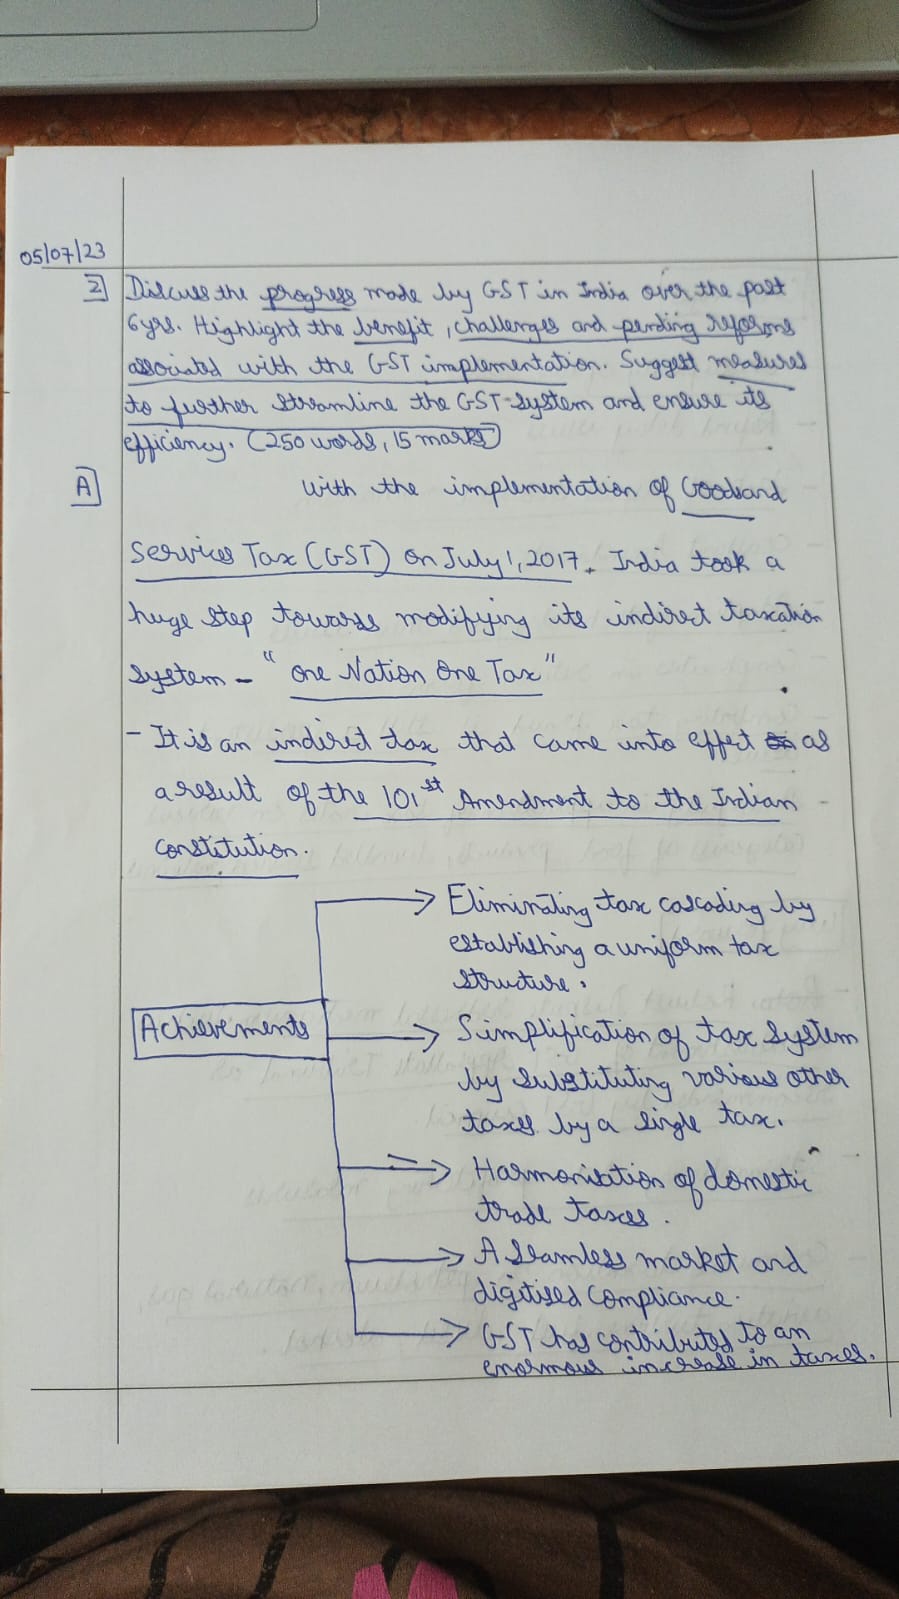 05/07/23
2] Discuss the progress made by GST in India over the past
6yrs. Highlight the benefit, challenges and pending reforms
associated with the GST implementation. Suggest measures
to further streamline the GST system and ensure its
efficiency. (250 words, 15 marks)
A] With the implementation of Goods and
Services Tax (GST) on July 1, 2017, India took a
huge step towards modifying its indirect taxation
system - "One Nation One Tax"
- It is an indirect tax that came into effect as
a result of the 101st Amendment to the Indian
constitution.
Achievements
→ Eliminating tax cascading by
establishing a uniform tax
structure.
→ Simplification of tax system
by substituting various other
taxes by a single tax.
→ Harmonisation of domestic
trade taxes.
→ A seamless market and
digitised compliance.
→ GST has contributed to an
enormous increase in taxes.